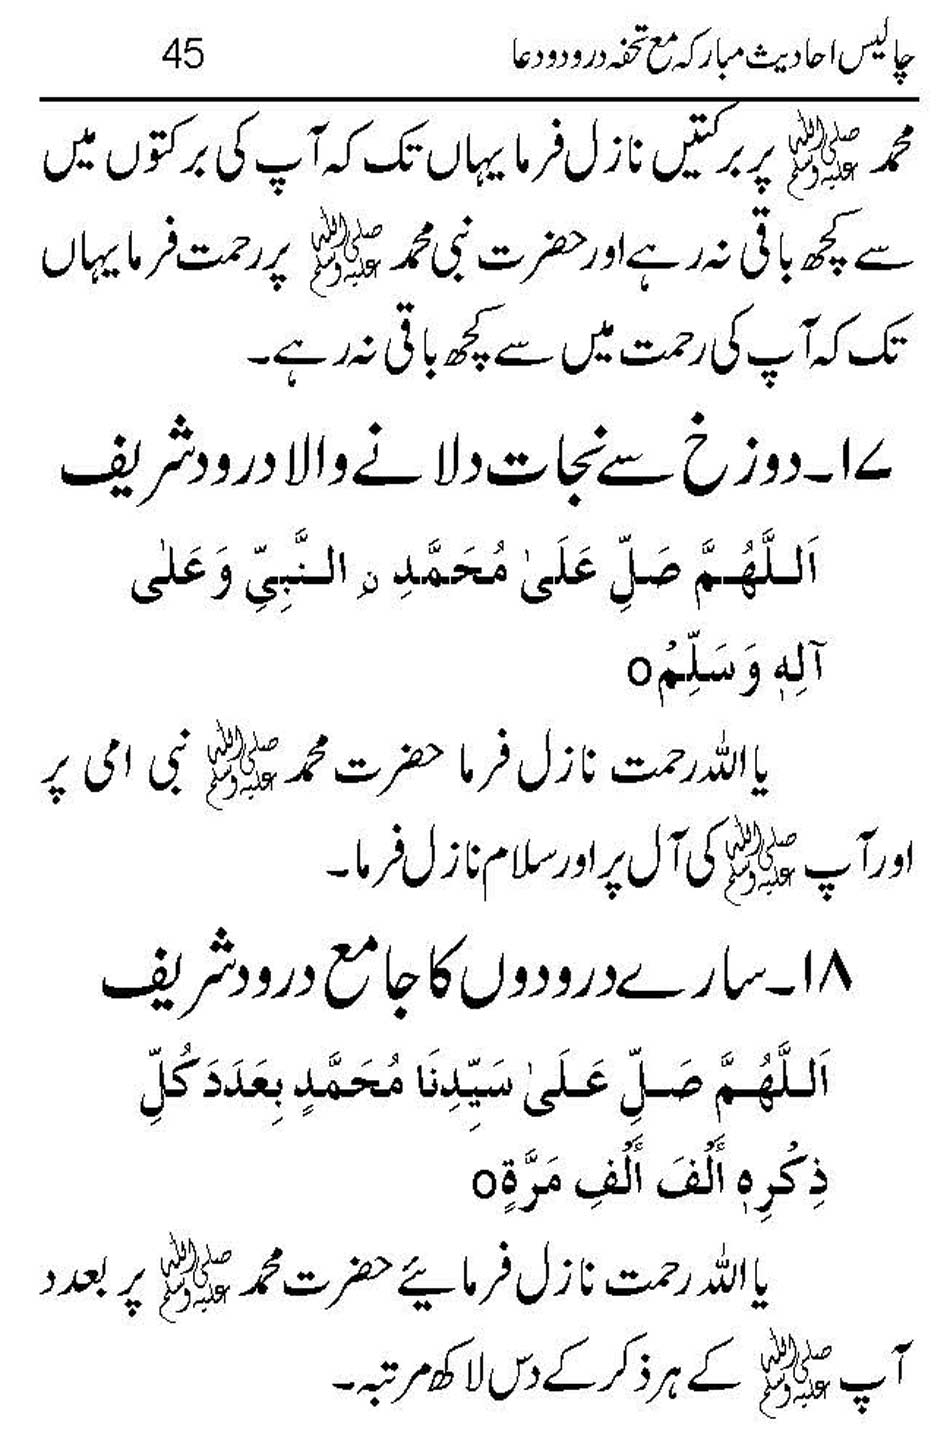 چالیس احادیث مبارکہ مع تحفہ درود و دعا 45
محمد ﷺ پر برکتیں نازل فرما یہاں تک کہ آپ کی برکتوں میں
سے کچھ باقی نہ رہے اور حضرت نبی محمد ﷺ پر رحمت فرما یہاں
تک کہ آپ کی رحمت میں سے کچھ باقی نہ رہے۔
۱۷۔ دوزخ سے نجات دلانے والا درود شریف
اَللّٰهُمَّ صَلِّ عَلَىٰ مُحَمَّدِ نِ النَّبِيِّ وَ عَلٰى
آلِهٖ وَ سَلِّمْ o
یا اللہ رحمت نازل فرما حضرت محمد ﷺ نبی امی پر
اور آپ ﷺ کی آل پر اور سلام نازل فرما۔
۱۸۔ سارے درودوں کا جامع درود شریف
اَللّٰهُمَّ صَلِّ عَلَىٰ سَيِّدِنَا مُحَمَّدٍ بِعَدَدَ كُلِّ
ذِكْرِهٖ أَلْفَ أَلْفِ مَرَّةٍ o
یا اللہ رحمت نازل فرمائیے حضرت محمد ﷺ پر بعدد
آپ ﷺ کے ہر ذکر کے دس لاکھ مرتبہ۔